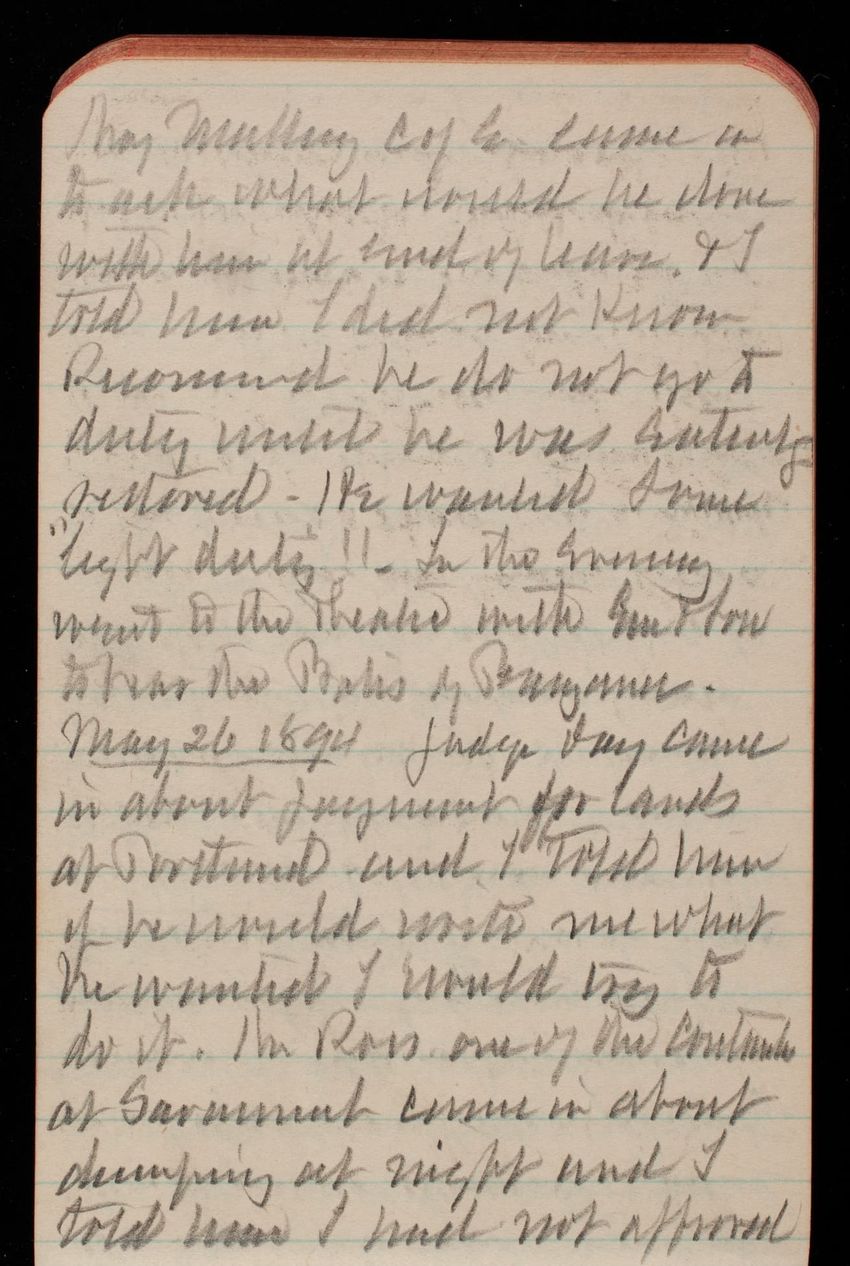 Maj Mallery C of E. came in
to ask what would be done
with him at end of leave. & I
told him I did not know
Recommend he do not go to
duty until he was entirely
restored - He wanted some
"light duty"!! - In the Evening
went to the theatre with Em & Lou
to hear the Pirates of Penzance.
May 26 1894 Judge Day came
in about payment for lands
at Portland and I told him
if he would write me what
he wanted I would try to
do it. Mr Ross one of the
at came in about
dumping at night and I
told him I had not approved